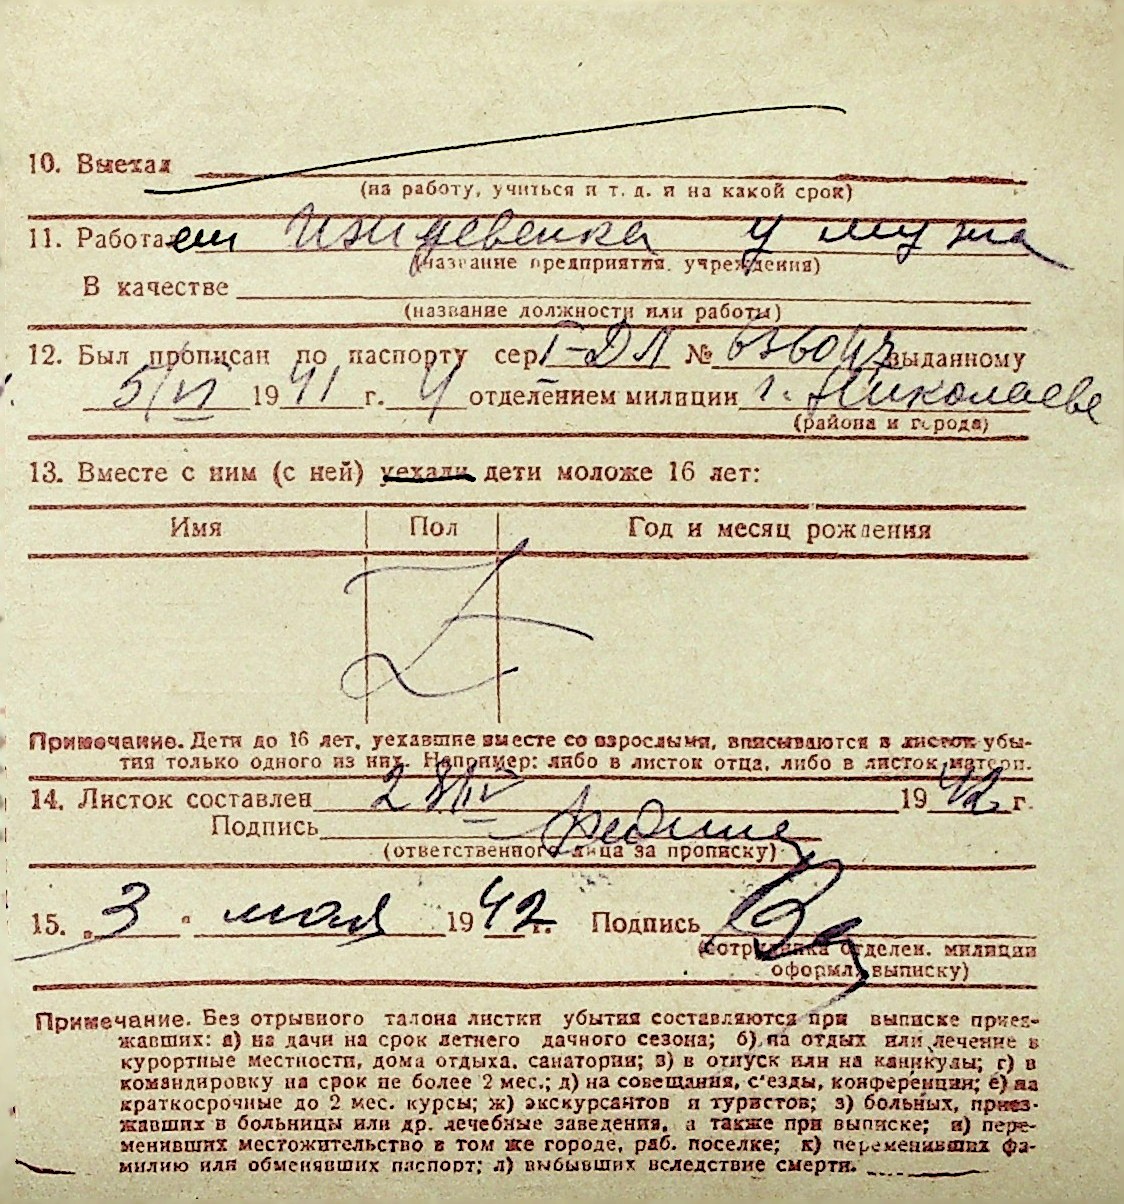 10. Выехал
(на работу, учиться и т. д. и на какой срок)
11. Работает Иждевенка у мужа
(название предприятия, учреждения)
В качестве
(название должности или работы)
12. Был прописан по паспорту сер. I-ДЛ № 636047 выданному
5/VI 1941 г. 4 отделением милиции г. Николаеве
(района и города)
13. Вместе с ним (с ней) уехали дети моложе 16 лет:
Имя Пол Год и месяц рождения
Примечание. Дети до 16 лет, уехавшие вместе со взрослыми, вписываются в листок убы-
тия только одного из них. Например: либо в листок отца, либо в листок матери.
14. Листок составлен 28/IV 1942 г.
Подпись
(ответственного лица за прописку)
15. „3" мая 1942 г. Подпись
(сотрудника отделен. милиции
оформл. выписку)
Примечание. Без отрывного талона листки убытия составляются при выписке приез-
жавших: а) на дачи на срок летнего дачного сезона; б) на отдых или лечение в
курортные местности, дома отдыха, санатории; в) в отпуск или на каникулы; г) в
командировку на срок не более 2 мес.; д) на совещания, с'езды, конференции; е) на
краткосрочные до 2 мес. курсы; ж) экскурсантов и туристов; з) больных, приез-
жавших в больницы или др. лечебные заведения, а также при выписке; и) пере-
менивших местожительство в том же городе, раб. поселке; к) переменивших фа-
милию или обменявших паспорт; л) выбывших вследствие смерти.